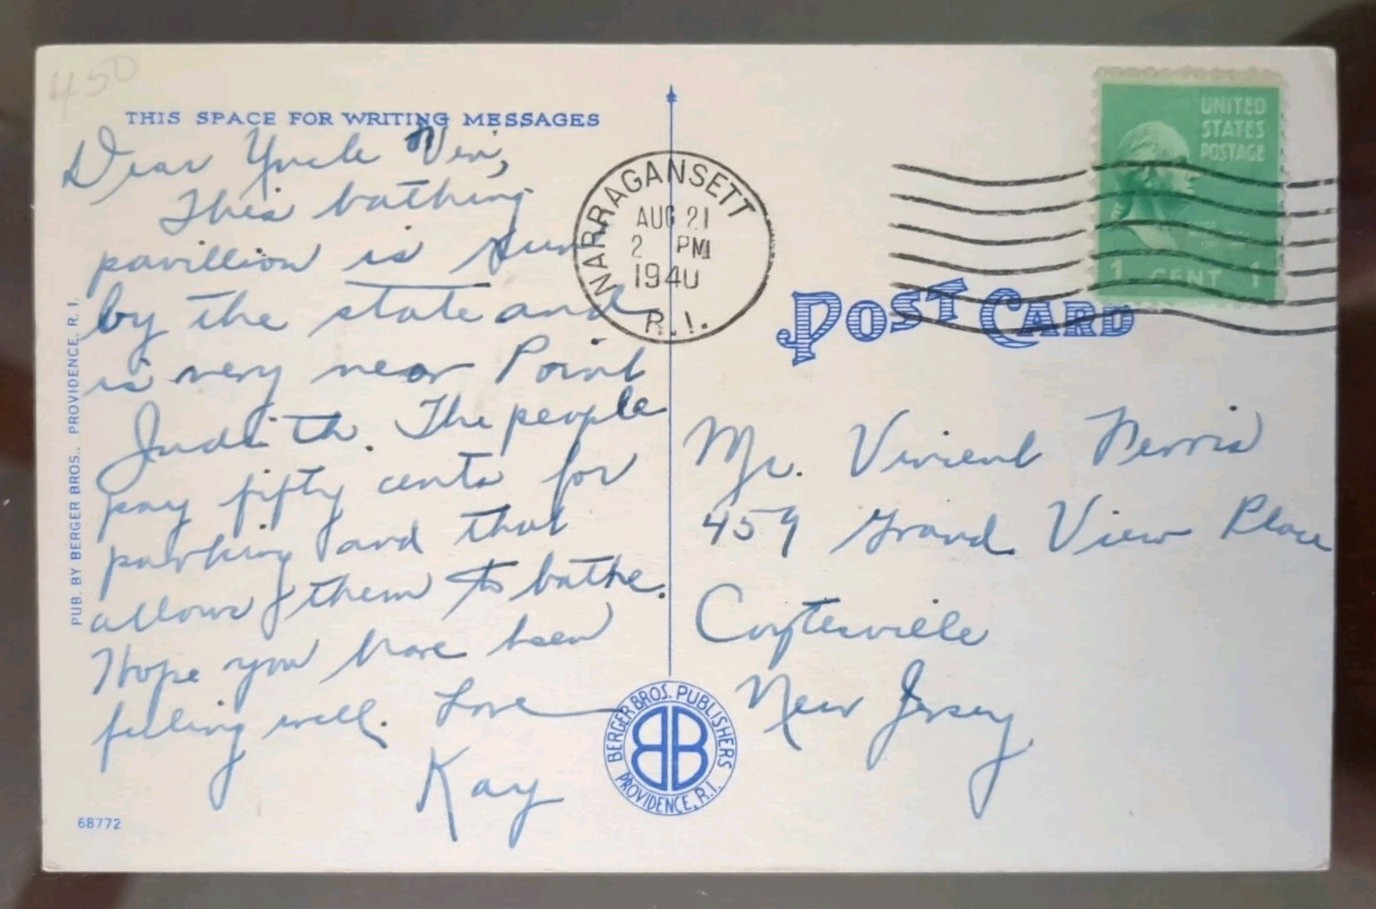 450
THIS SPACE FOR WRITING MESSAGES
Dear Uncle Vin,
This bathing
pavillion is run
by the state and
is very near Point
Judith. The people
pay fifty cents for
parking and that
allows them to bathe.
Hope you have been
feeling well. Love
Kay
PUB. BY BERGER BROS., PROVIDENCE, R. I.
68772
NARRAGANSETT
AUG 21
2 PM
1940
R.I.
UNITED
STATES
POSTAGE
1 CENT 1
POST CARD
Mr. Vincent Ferris
459 Grand View Place
Coytesville
New Jersey
BERGER BROS. PUBLISHERS
BB
PROVIDENCE, R.I.